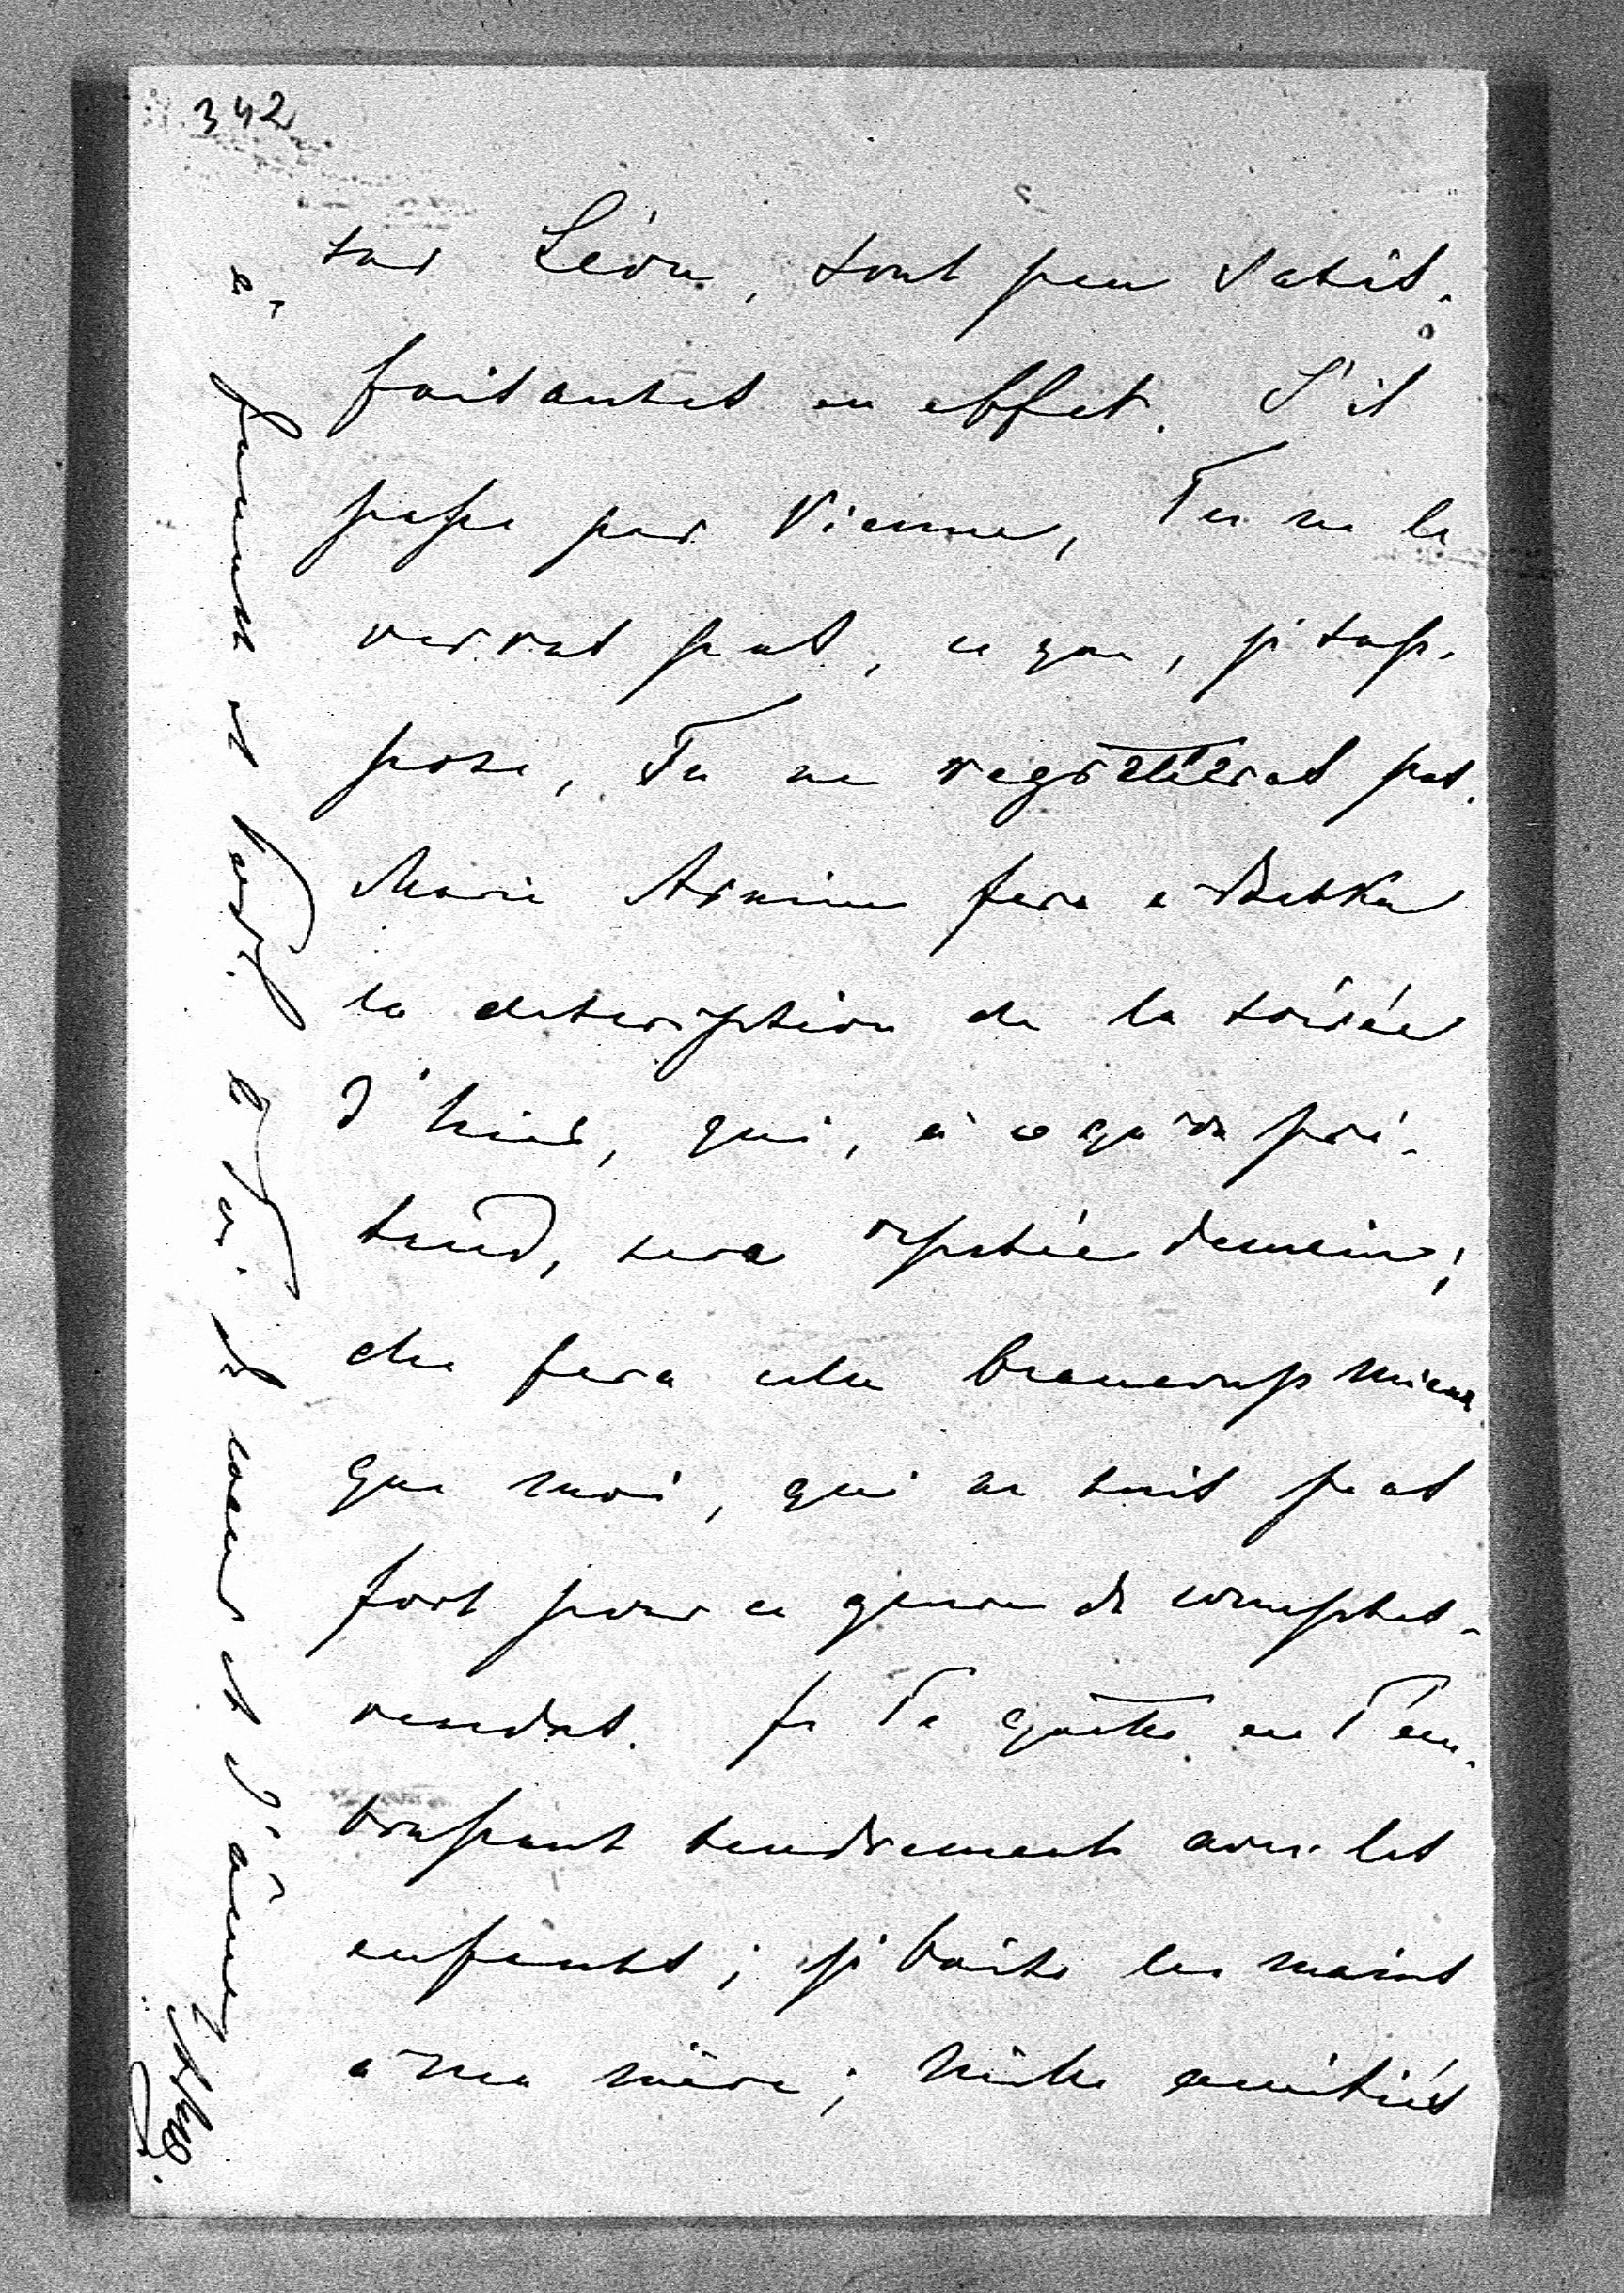 342
sur Léon, sont peu satis-
faisantes en effet. S'il
passe par Vienne, Tu ne le
verras pas, ce que, je sup-
pose, Tu ne regretteras pas.
Marie Arnim fera à Betka
la description de la soirée
d'hier, qui, à ce qu'on pré-
tend, sera repetée demain;
elle fera cela beaucoup mieux
que moi, qui ne suis pas
fort pour ce genre de comptes-
rendus. Je Te quitte en T'em-
brassant tendrement avec les
enfants; je baise les mains
à ma mère; mille amitiés
à et
à Toi de coeur et d'âme,